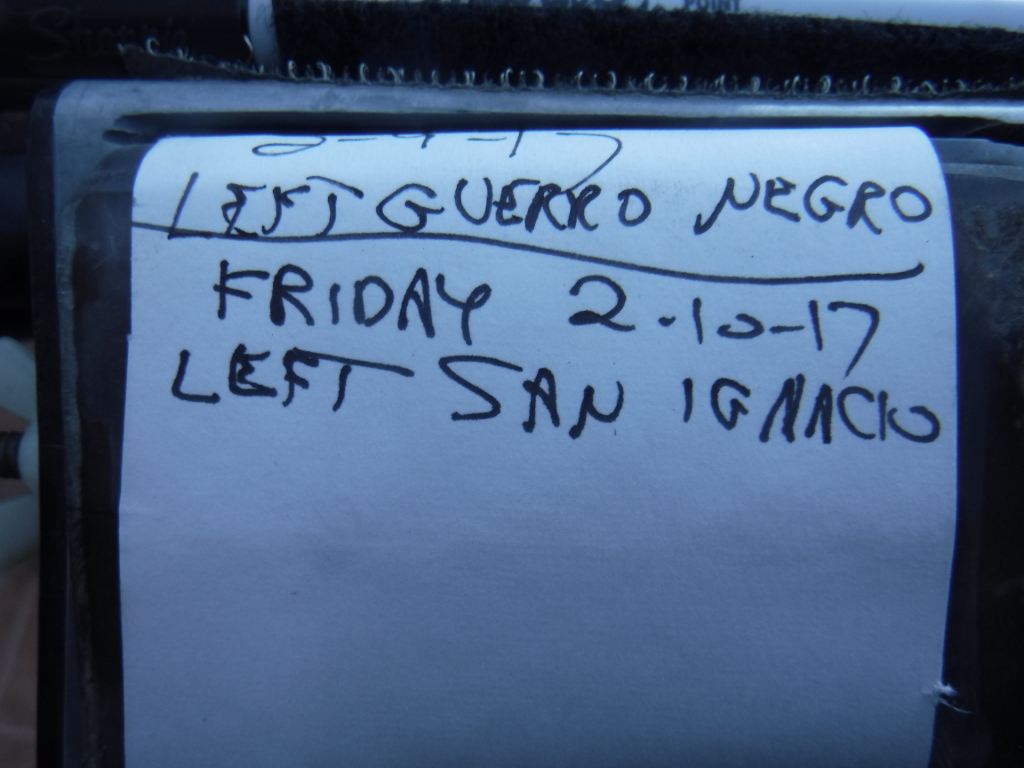 POINT
2-9-17
LEFT GUERRO NEGRO
FRIDAY 2-10-17
LEFT SAN IGNACIO